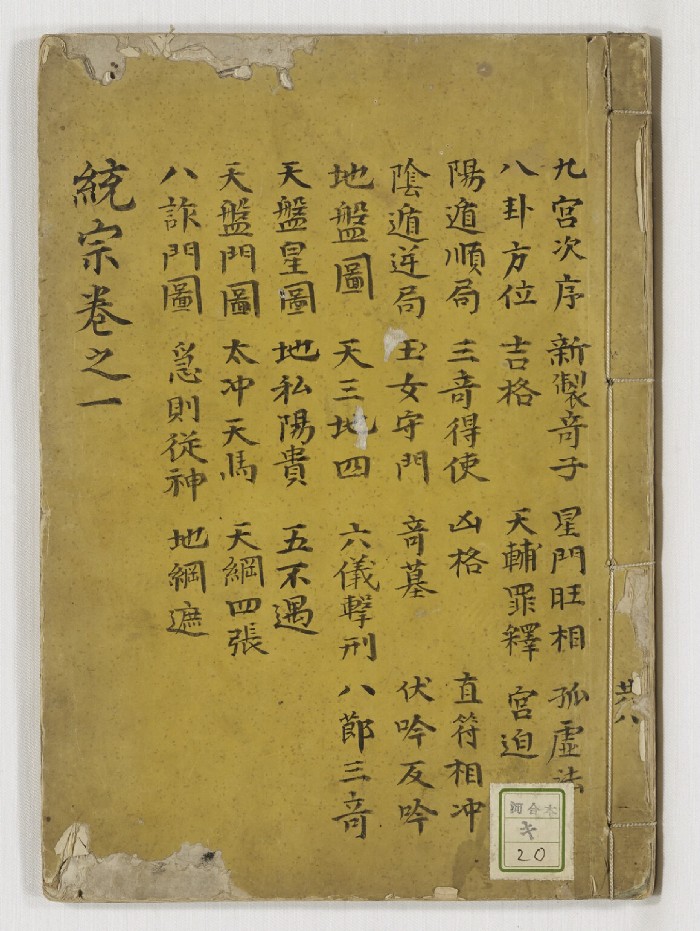 九宮次序 新製竒子 星門旺相 孤虛法
八卦方位 吉格 天輔罪釋 宮迫
陽遁順局 三竒得使 凶格 直符相冲
陰遁逆局 玉女守門 竒墓 伏吟反吟
地盤圖 天三地四 六儀擊刑 八節三竒
天盤星圖 地私陽貴 五不遇
天盤門圖 太冲天馬 天網四張
八詐門圖 急則従神 地網遮
統宗卷之一
共八
河合本
キ
20